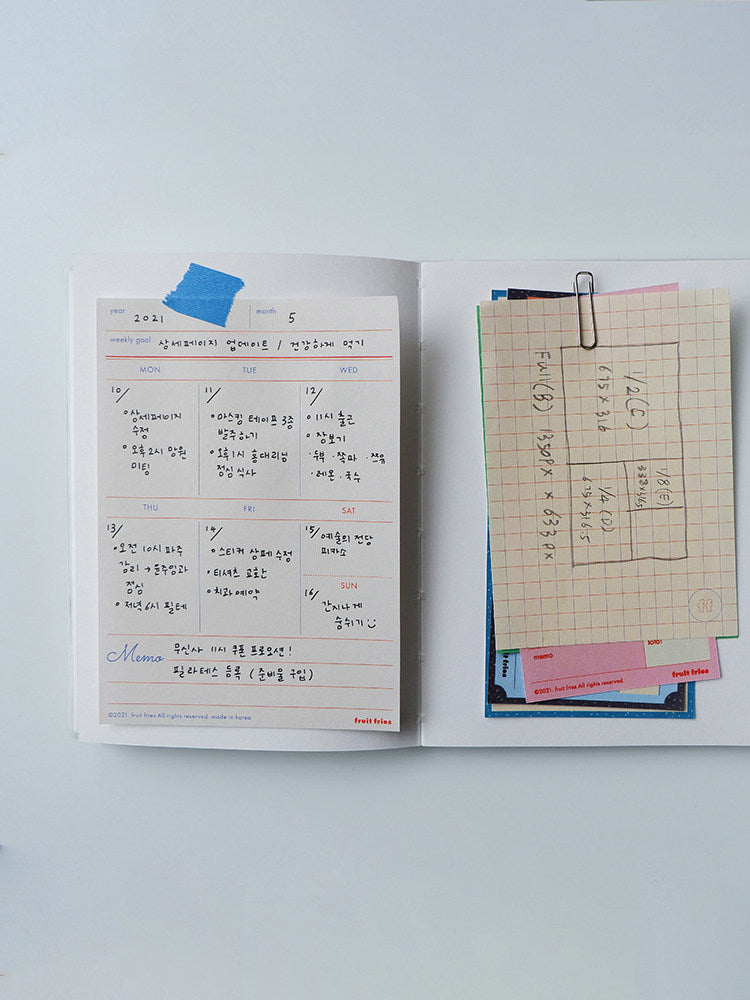 year 2021 month 5
weekly goal 상세페이지 업데이트 / 건강하게 먹기
MON TUE WED
10/
• 상세페이지
수정
• 오후 2시 망원
미팅
11/
• 마스킹 테이프 3종
발주하기
• 오후 1시 홍대리님
점심식사
12/
• 11시 출근
• 장보기
· 두부 · 쪽파 · 쯔유
· 레몬 · 국수
THU FRI SAT
13/
• 오전 10시 파주
감리 → 윤주임과
점심
• 저녁 6시 필테
14/
• 스티커 상페 수정
• 티셔츠 교환
• 치과예약
15/ 예술의 전당
피카소
SUN
16/ 간지나게
숨쉬기
Memo 무신사 11시 쿠폰 프로모션!
필라테스 등록 (준비물 구입)
©2021. fruit fries All rights reserved. made in korea fruit fries
1/2(C)
675 x 316
1/8(E)
1/4(D)
675 x 316.5
Full(B) 1350px x 633px
ff
total
memo
fruit fries
©2021. fruit fries All rights reserved.
fruit fries